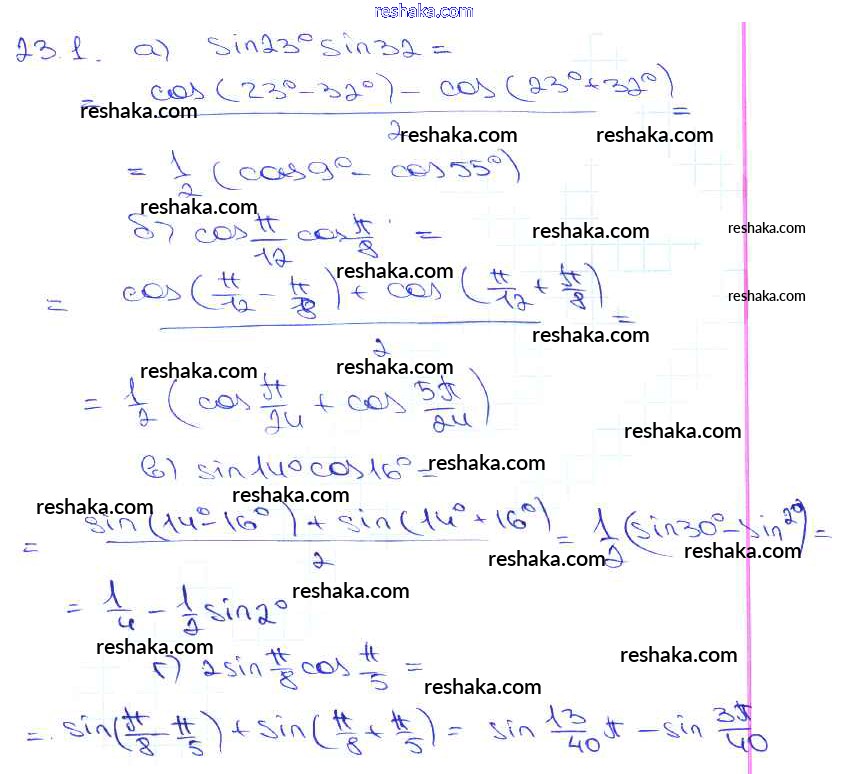 reshaka.com
23.1. а) sin23° sin32 =
= cos(23°-32°) - cos(23°+32°) / 2 =
reshaka.com
reshaka.com reshaka.com
= 1/2 (cos9° - cos55°)
reshaka.com
б) cos π/12 cos π/8 =
reshaka.com reshaka.com
reshaka.com
= cos(π/12 - π/8) + cos(π/12 + π/8) / 2 =
reshaka.com
reshaka.com
reshaka.com reshaka.com
= 1/2 (cos π/24 + cos 5π/24)
reshaka.com
в) sin14° cos16° =
reshaka.com
reshaka.com reshaka.com
= sin(14°-16°) + sin(14°+16°) / 2 = 1/2 (sin30° - sin2°) =
reshaka.com reshaka.com
= 1/4 - 1/2 sin2°
reshaka.com
reshaka.com reshaka.com
г) 2sin π/8 cos π/5 =
reshaka.com
= sin(π/8 - π/5) + sin(π/8 + π/5) = sin 13/40 π - sin 3π/40